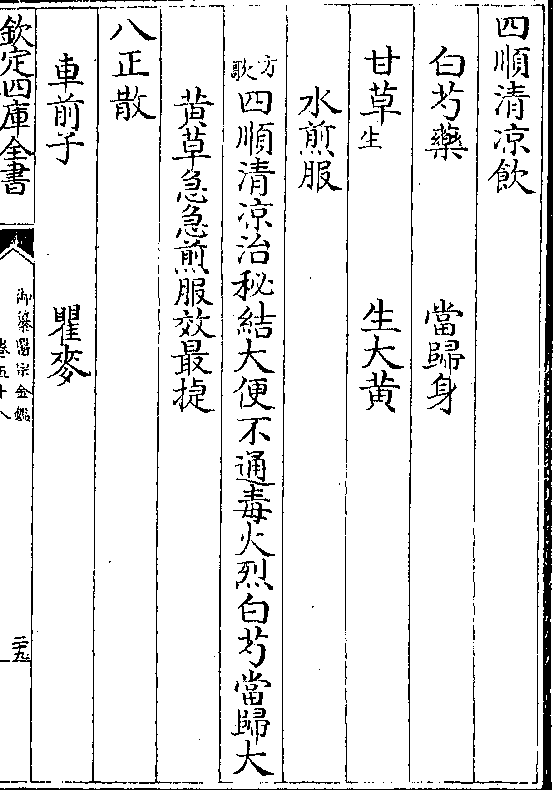 四順清凉飲
白芍藥　當歸身
甘草生　生大黄
水煎服
方歌四順清凉治秘結大便不通毒火烈白芍當歸大
黄草急急煎服效最㨗
八正散
車前子　瞿麥
欽定四庫全書
御纂醫宗金鑑
卷五十八
二九